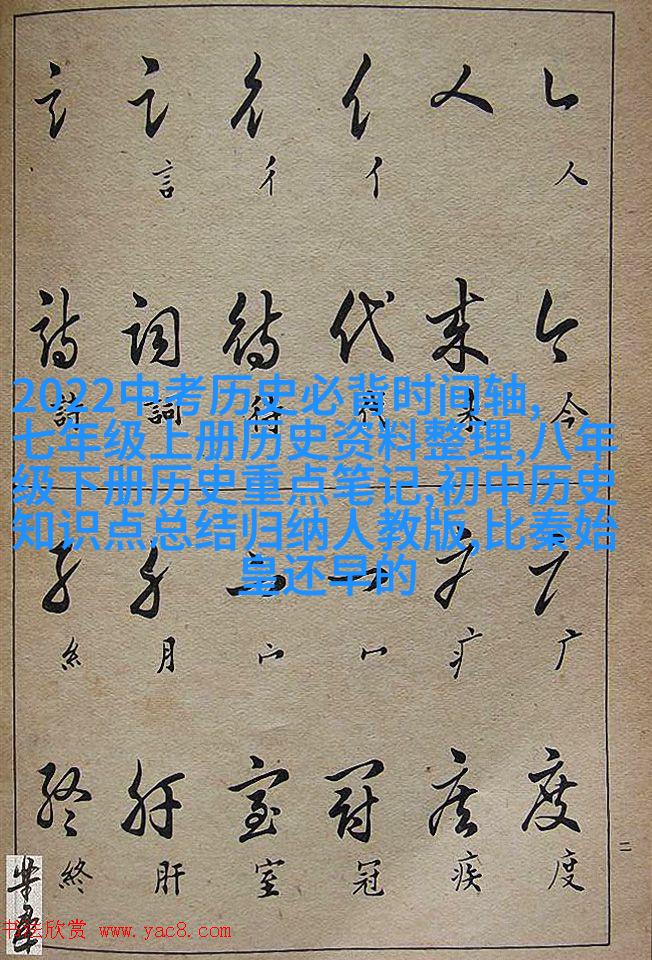 人 亻 彳 言
今 來 代 待 詞 詩
2022中考历史必背时间轴,
七年级上册历史资料整理,八年
级下册历史重点笔记,初中历史
知识点总结归纳人教版,比秦始
皇还早的
广 疒 冖 宀 月 糸
度 疾 冠 室 肝 終
二
书法欣赏 www.yac8.com